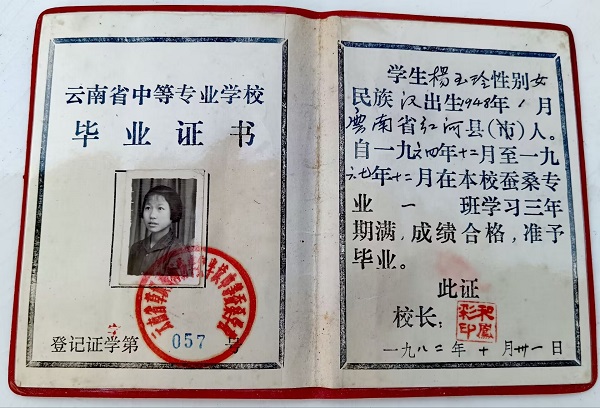 云南省中等专业学校
毕业证书
登记证学第 057 号
学生杨玉玲性别女
民族汉出生1948年1月
云南省红河县(市)人。
自一九六四年十二月至一九
六七年十二月在本校蚕桑专
业一班学习三年
期满,成绩合格,准予
毕业。
此证
校长:
一九八二年十月卅一日